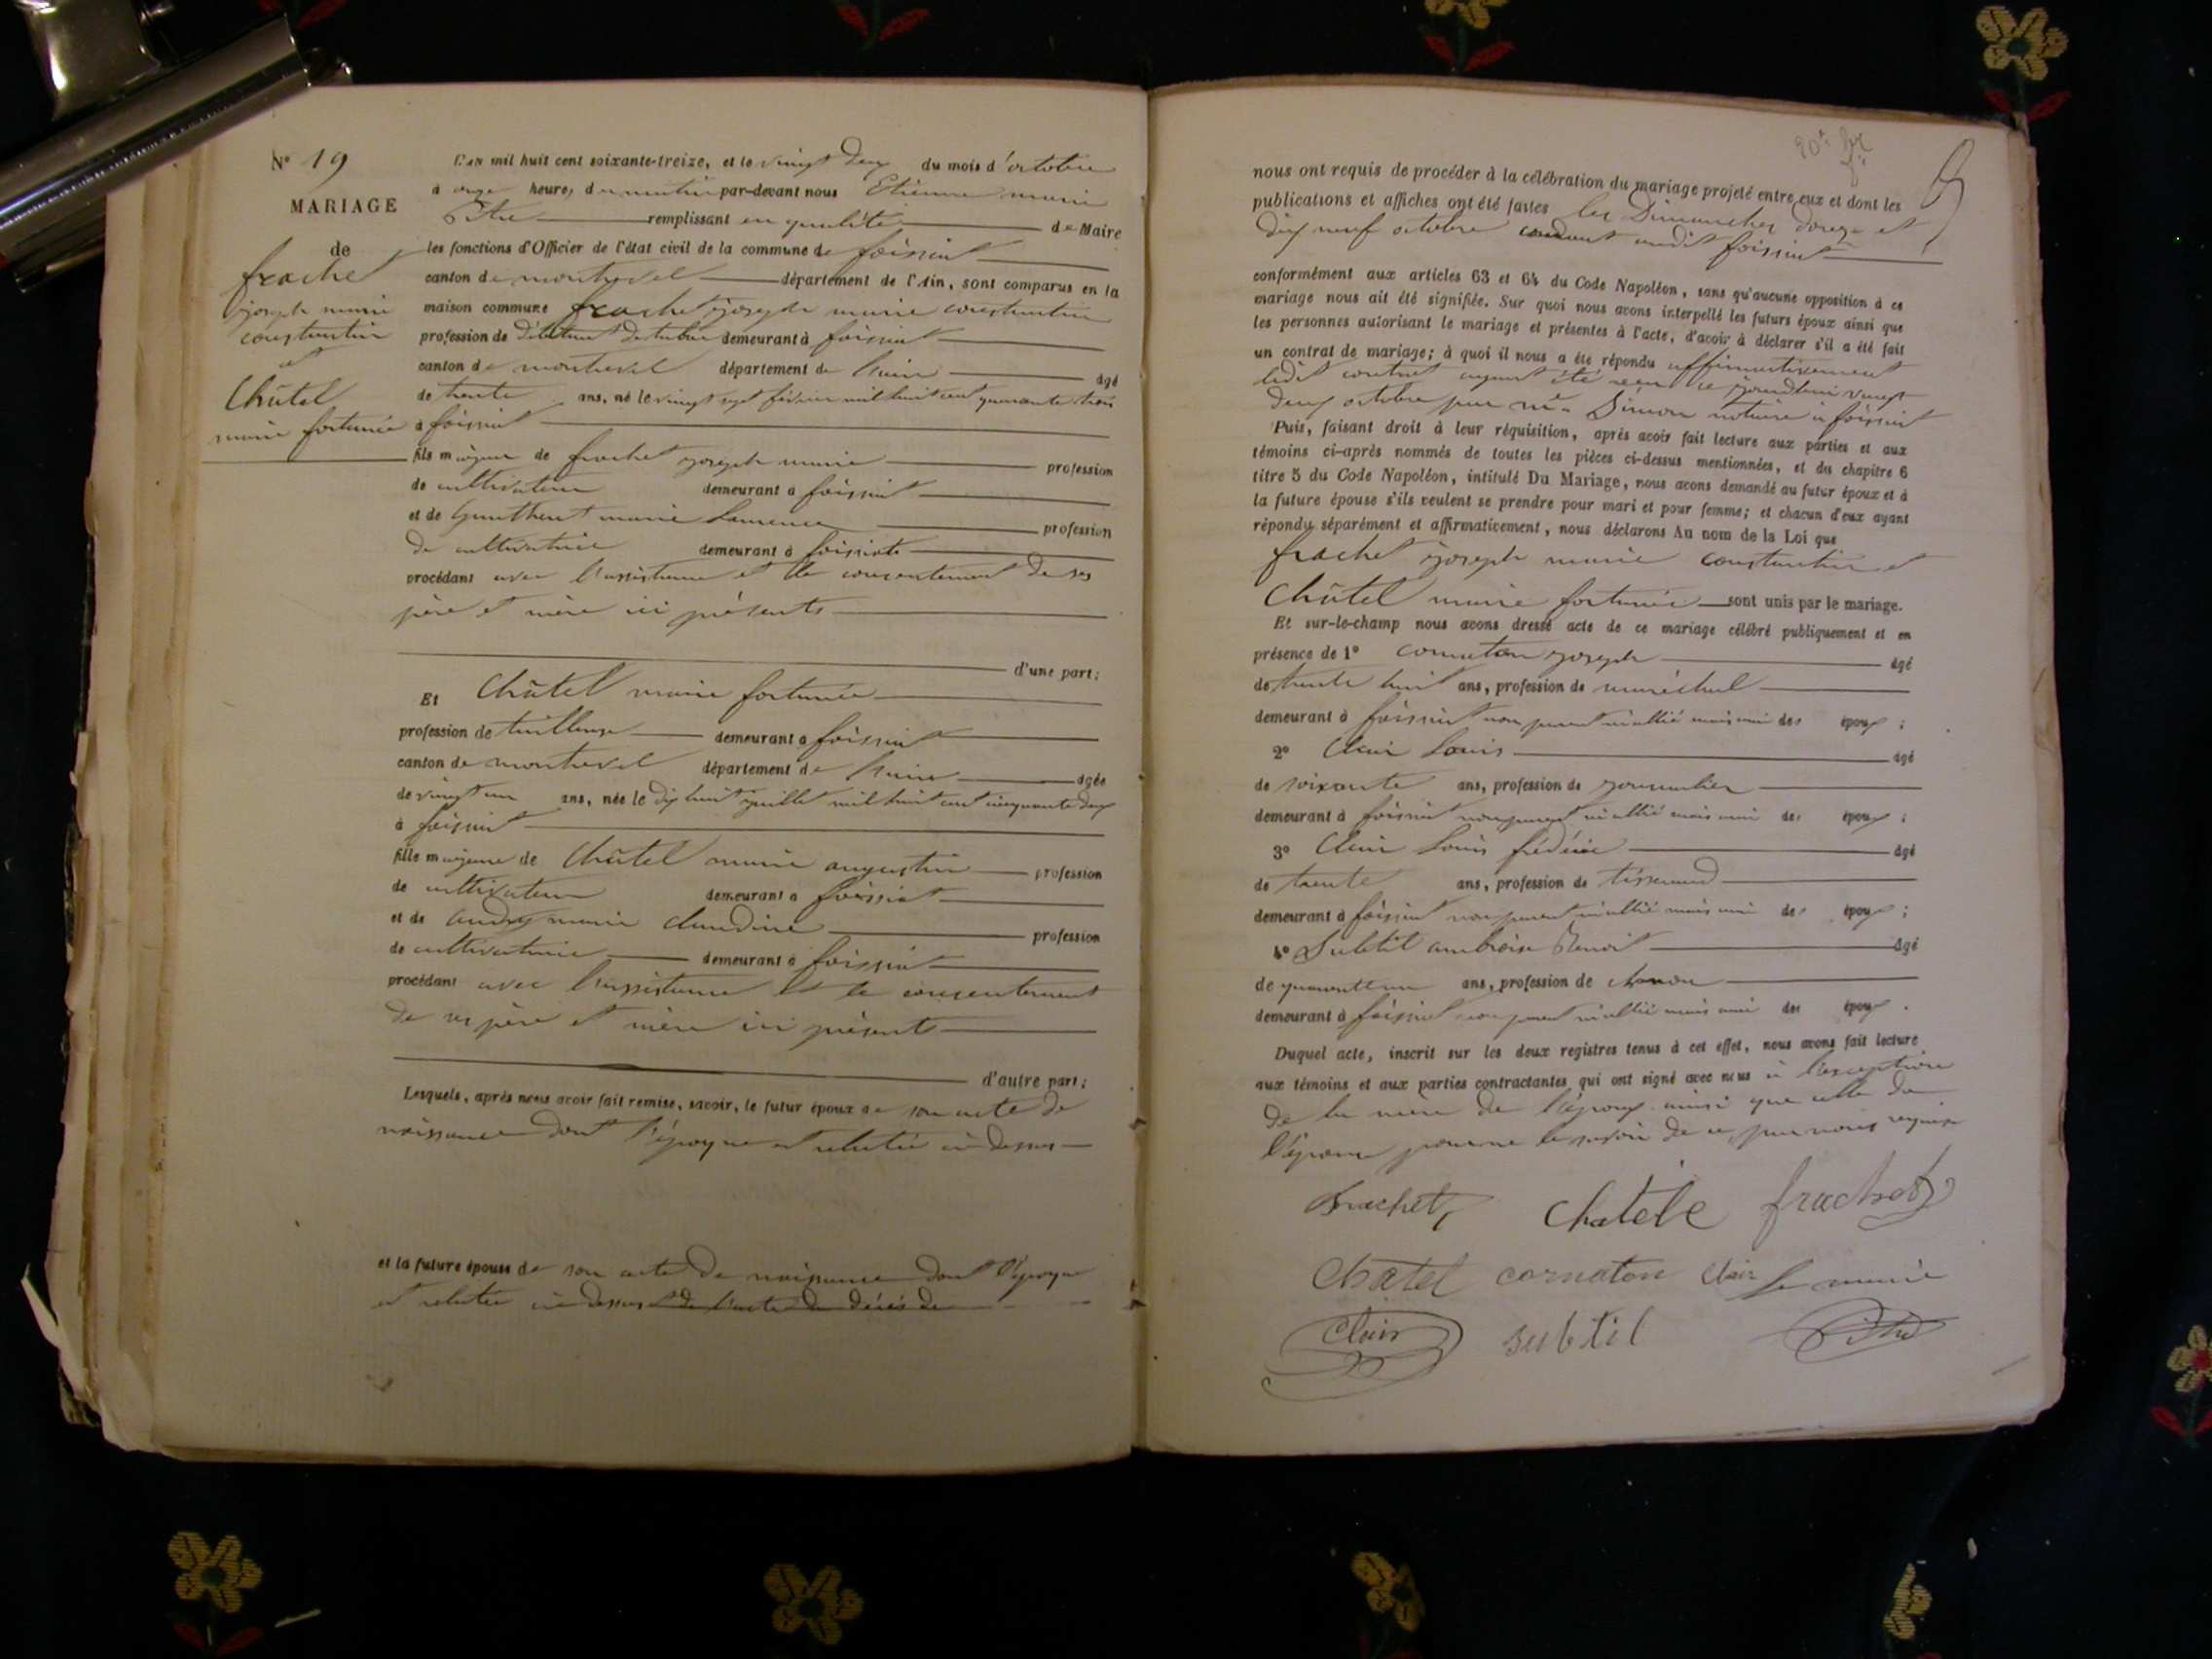 N° 19
MARIAGE
de
frachet
joseph marie
constantin
et
Châtel
marie fortunée
L'AN mil huit cent soixante-treize, et le vingt deux du mois d'octobre
à onze heures du matin par-devant nous Etienne marie
remplissant en qualité de Maire
les fonctions d'Officier de l'état civil de la commune de foissiat
canton de montrevel département de l'Ain, sont comparus en la
maison commune frachet joseph marie constantin
profession de débitant de tabac demeurant à foissiat
canton de montrevel département de l'ain âgé
de trente ans, né le vingt sept février mil huit cent quarante trois
à foissiat
fils majeur de frachet joseph marie profession
de cultivateur demeurant à foissiat
et de marie Laurence profession
de cultivatrice demeurant à foissiat
procédant avec l'assistance et le consentement de ses
père et mère ici présents
d'une part;
Et Châtel marie fortunée
profession de tailleuse demeurant à foissiat
canton de montrevel département de l'ain âgée
de vingt un ans, née le dix huit juillet mil huit cent cinquante deux
à foissiat
fille majeure de Châtel marie augustin profession
de cultivateur demeurant à foissiat
et de marie claudine profession
de cultivatrice demeurant à foissiat
procédant avec l'assistance et le consentement
de ses père et mère ici présents
d'autre part;
Lesquels, après nous avoir fait remise, savoir, le futur époux de son acte de
naissance dont l'époque est relatée ci-dessus
et la future épouse de son acte de naissance dont l'époque
est relatée ci-dessus et de l'acte de décès de
nous ont requis de procéder à la célébration du mariage projeté entre eux et dont les
publications et affiches ont été faites les Dimanches douze et
dix neuf octobre courant audit foissiat
conformément aux articles 63 et 64 du Code Napoléon, sans qu'aucune opposition à ce
mariage nous ait été signifiée. Sur quoi nous avons interpellé les futurs époux ainsi que
les personnes autorisant le mariage et présentes à l'acte, d'avoir à déclarer s'il a été fait
un contrat de mariage; à quoi il nous a été répondu affirmativement
ledit contrat ayant été reçu ce jourd'hui vingt
deux octobre par me Simon notaire à foissiat
Puis, faisant droit à leur réquisition, après avoir fait lecture aux parties et aux
témoins ci-après nommés de toutes les pièces ci-dessus mentionnées, et du chapitre 6
titre 5 du Code Napoléon, intitulé Du Mariage, nous avons demandé au futur époux et à
la future épouse s'ils veulent se prendre pour mari et pour femme; et chacun d'eux ayant
répondu séparément et affirmativement, nous déclarons Au nom de la Loi que
frachet joseph marie constantin et
Châtel marie fortunée sont unis par le mariage.
Et sur-le-champ nous avons dressé acte de ce mariage célébré publiquement et en
présence de 1° cornaton joseph âgé
de trente huit ans, profession de maréchal
demeurant à foissiat non parent ni allié mais ami des époux;
2° Clair Louis âgé
de soixante ans, profession de journalier
demeurant à foissiat non parent ni allié mais ami des époux;
3° Clair Louis frédéric âgé
de trente ans, profession de tisserand
demeurant à foissiat non parent ni allié mais ami des époux;
4° Subtil ambroise Benoit âgé
de quarante un ans, profession de
demeurant à foissiat non parent ni allié mais ami des époux.
Duquel acte, inscrit sur les deux registres tenus à cet effet, nous avons fait lecture
aux témoins et aux parties contractantes qui ont signé avec nous à l'exception
de la mère de l'époux ainsi que celle de
l'épouse pour ne le savoir de ce par nous requise
frachet Chatele frachet
Chatel cornaton Clair le maire
Clair subtil